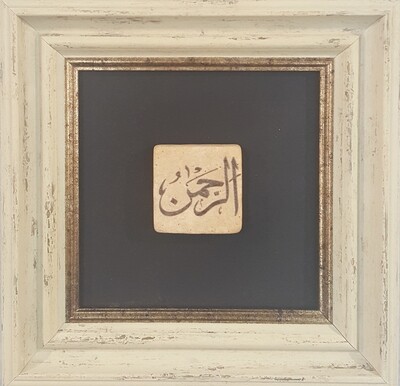 الرحمن